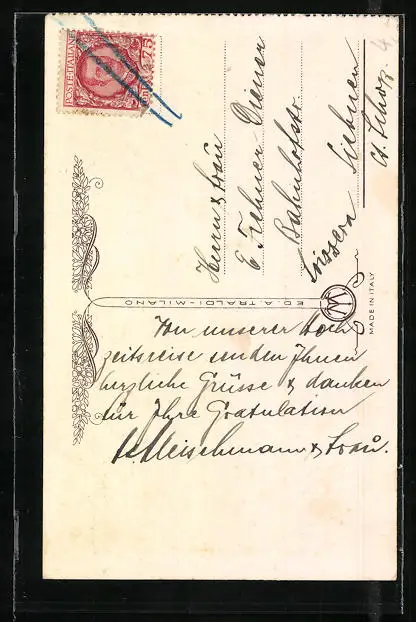 POSTE ITALIANE
Cent. 75
Herrn & Frau
E Fehner Diener
Bahnhofstr.
Svizzera Siebnen
Ct. Schwz.
ED. A. TRALDI - MILANO
MADE IN ITALY
Von unserer Hoch
zeitsreise senden Ihnen
herzliche Grüsse & danken
für Ihre Gratulation
Fleischmann & Frau.